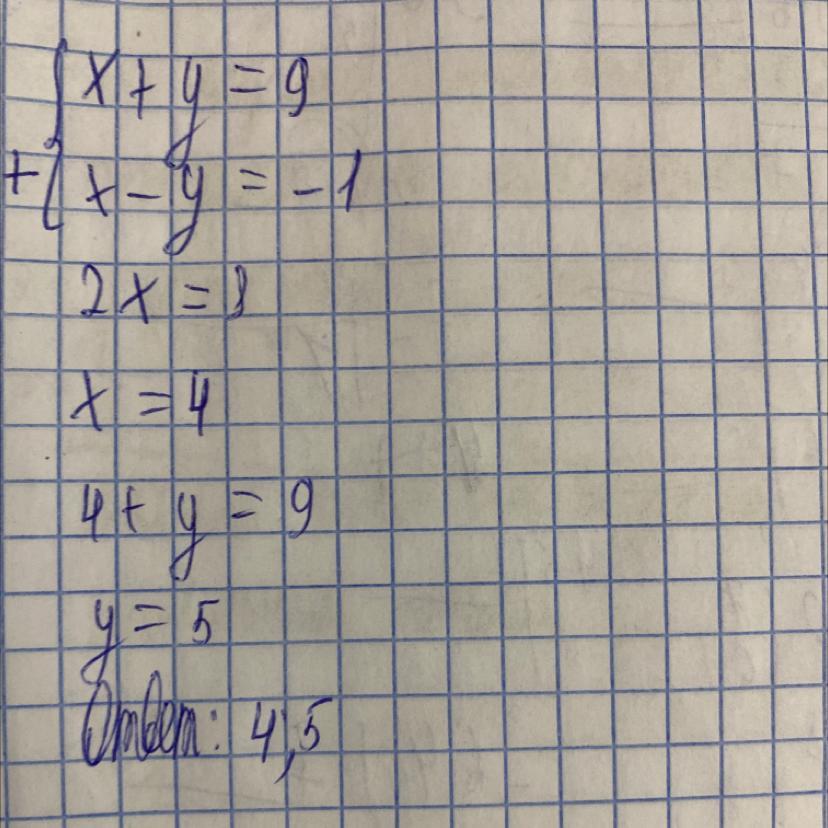 x + y = 9
+ x - y = -1
2x = 8
x = 4
4 + y = 9
y = 5
Ответ: 4;5